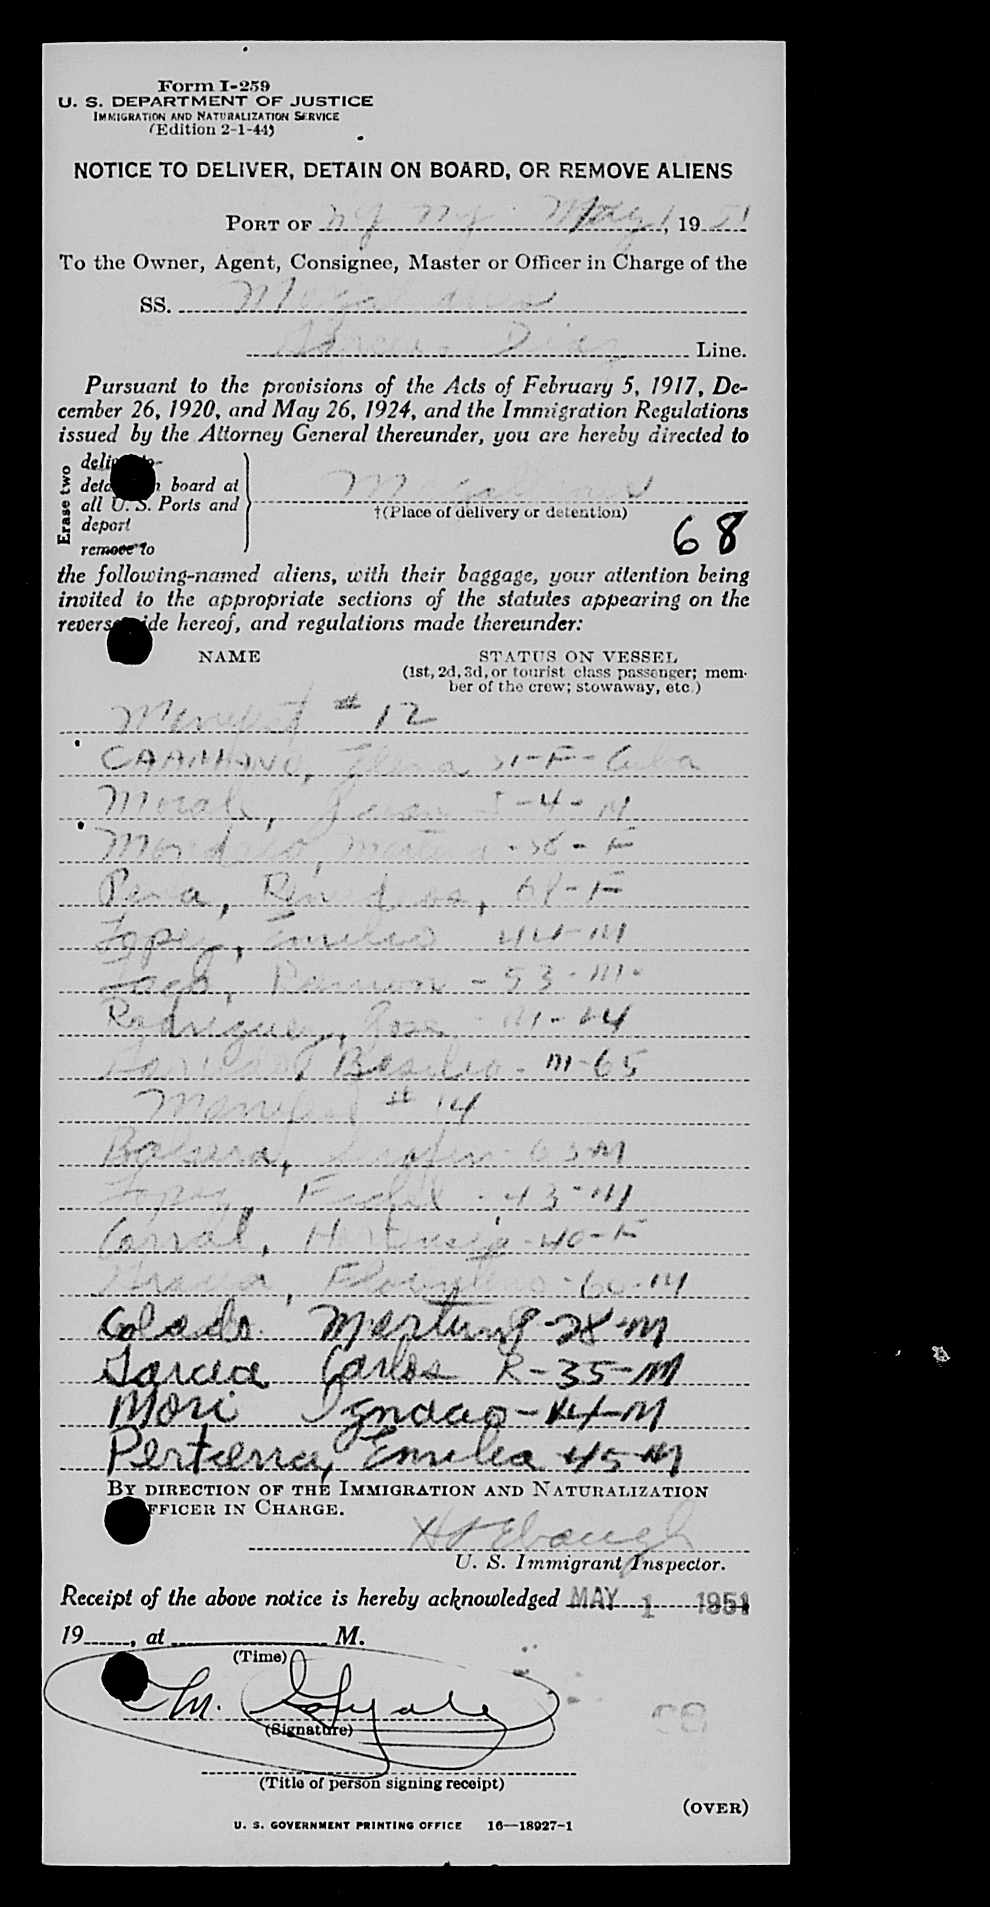 Form I-259
U. S. DEPARTMENT OF JUSTICE
IMMIGRATION AND NATURALIZATION SERVICE
(Edition 2-1-44)
NOTICE TO DELIVER, DETAIN ON BOARD, OR REMOVE ALIENS
PORT OF NY NY. May 1, 1951
To the Owner, Agent, Consignee, Master or Officer in Charge of the
SS. Magallanes
Garcia Diaz Line.
Pursuant to the provisions of the Acts of February 5, 1917, De-
cember 26, 1920, and May 26, 1924, and the Immigration Regulations
issued by the Attorney General thereunder, you are hereby directed to
Erase two
deliver to
detain on board at
all U. S. Ports and
deport
remove to
Magallanes
†(Place of delivery or detention)
68
the following-named aliens, with their baggage, your attention being
invited to the appropriate sections of the statutes appearing on the
reverse side hereof, and regulations made thereunder:
NAME STATUS ON VESSEL
(1st, 2d, 3d, or tourist class passenger; mem-
ber of the crew; stowaway, etc.)
Manifest # 12
CAAMANO, Elena -F- Cuba
-4-M
-F
Pena, Remedios, 68-F
Lopez, Emilio 44-M
Ramon - 53-M-
Rodriguez, Jose - M-44
Basilio - M-65
Manifest # 14
63-M
Lopez, - 43-M
Corral, Hortensia - 40-F
-M
Colado -28-M
Garcia Carlos R-35-M
Mori Ignacio -44-M
Pertierra, Emilia 45-M
BY DIRECTION OF THE IMMIGRATION AND NATURALIZATION
OFFICER IN CHARGE.
U. S. Immigrant Inspector.
Receipt of the above notice is hereby acknowledged MAY 1 1951
19___, at ___ M.
(Time)
M.
(Signature)
(Title of person signing receipt)
(OVER)
U. S. GOVERNMENT PRINTING OFFICE 16—18927-1